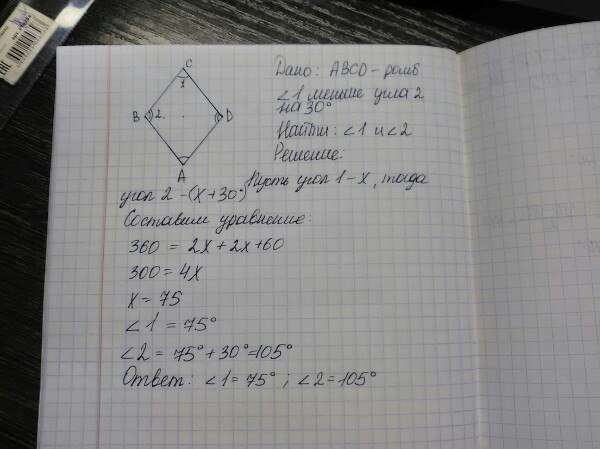 C
x
B
2
D
A
Дано: ABCD - ромб
∠1 меньше угла 2
на 30°
Найти: ∠1 и ∠2
Решение:
Пусть угол 1 - x, тогда
угол 2 - (x + 30°)
Составим уравнение:
360 = 2x + 2x + 60
300 = 4x
x = 75
∠1 = 75°
∠2 = 75° + 30° = 105°
Ответ: ∠1 = 75° ; ∠2 = 105°